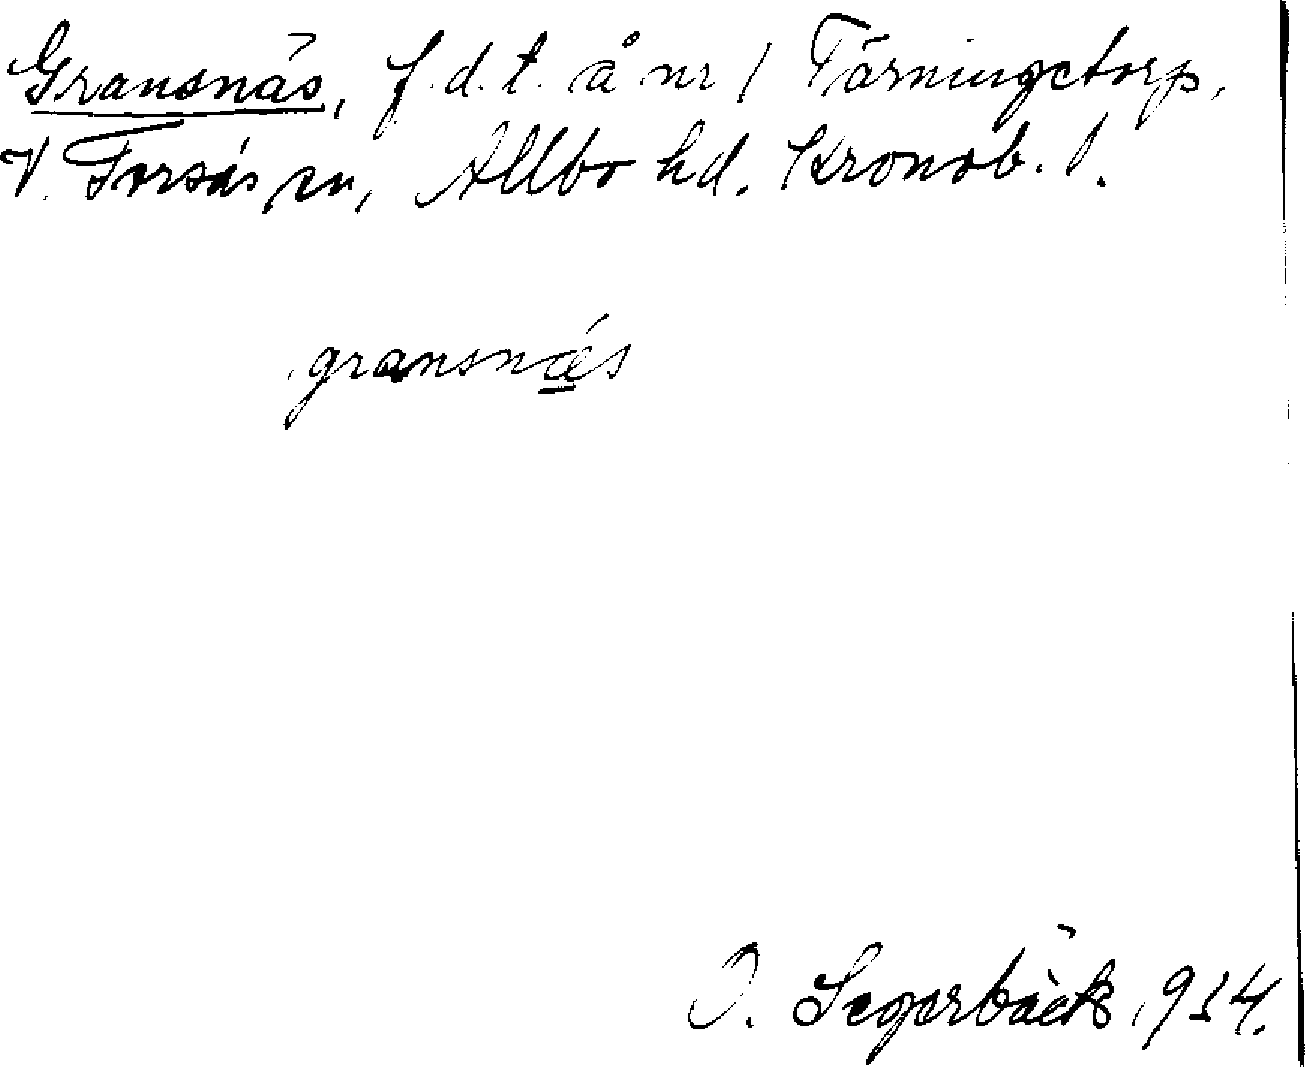 Gransnäs, f.d.t. å nr 1 Tärningetorp,
V. Torsås sn, Allbo hd. Kronob. l.
gransnǽ̲s
O. Segerbäck 1934.